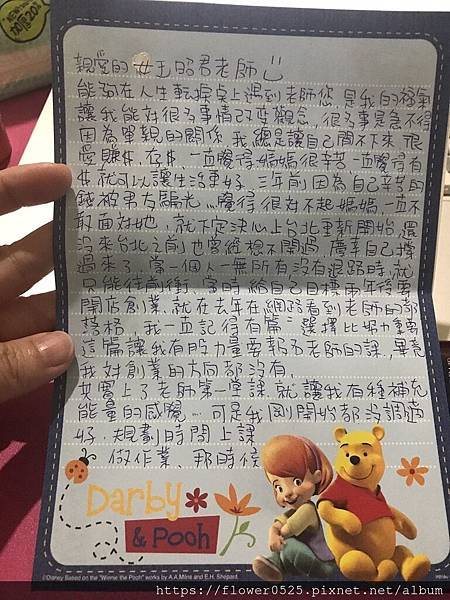 親愛的女王昭君老師
能夠在人生轉捩桌上遇到老師您,是我的福氣
讓我能對很多事情改變觀念,很多事是急不得
因為單親的關係,我總是讓自己閒不下來,很
愛賺$、存$,一直覺得媽媽很辛苦一直覺得有
$就可以讓生活更好,三年前因為自己辛苦的
錢被男友騙光,覺得很對不起媽媽,一直不
敢面對她,就下定決心上台北重新開始,還
沒來台北之前,也曾經想不開過,慶幸自己撐
過來了,當一個人一無所有沒有退路時,就
只能往前衝,當時給自己目標兩年後要
開店創業,就在去年在網路看到老師的部
落格,我一直記得有篇-選擇比努力重要
這篇讓我有股力量要報名老師的課,畢竟
我對創業的方向都沒有.
其實上了老師第一堂課,就讓我有種補充
能量的感覺...可是我剛開始都沒調適
好,規劃時間上課
、做作業,那時候
Darby
& Pooh
©Disney Based on the "Winnie the Pooh" works by A.A.Milne and E.H. Shepard.
https://flower0525.pixnet.net/album